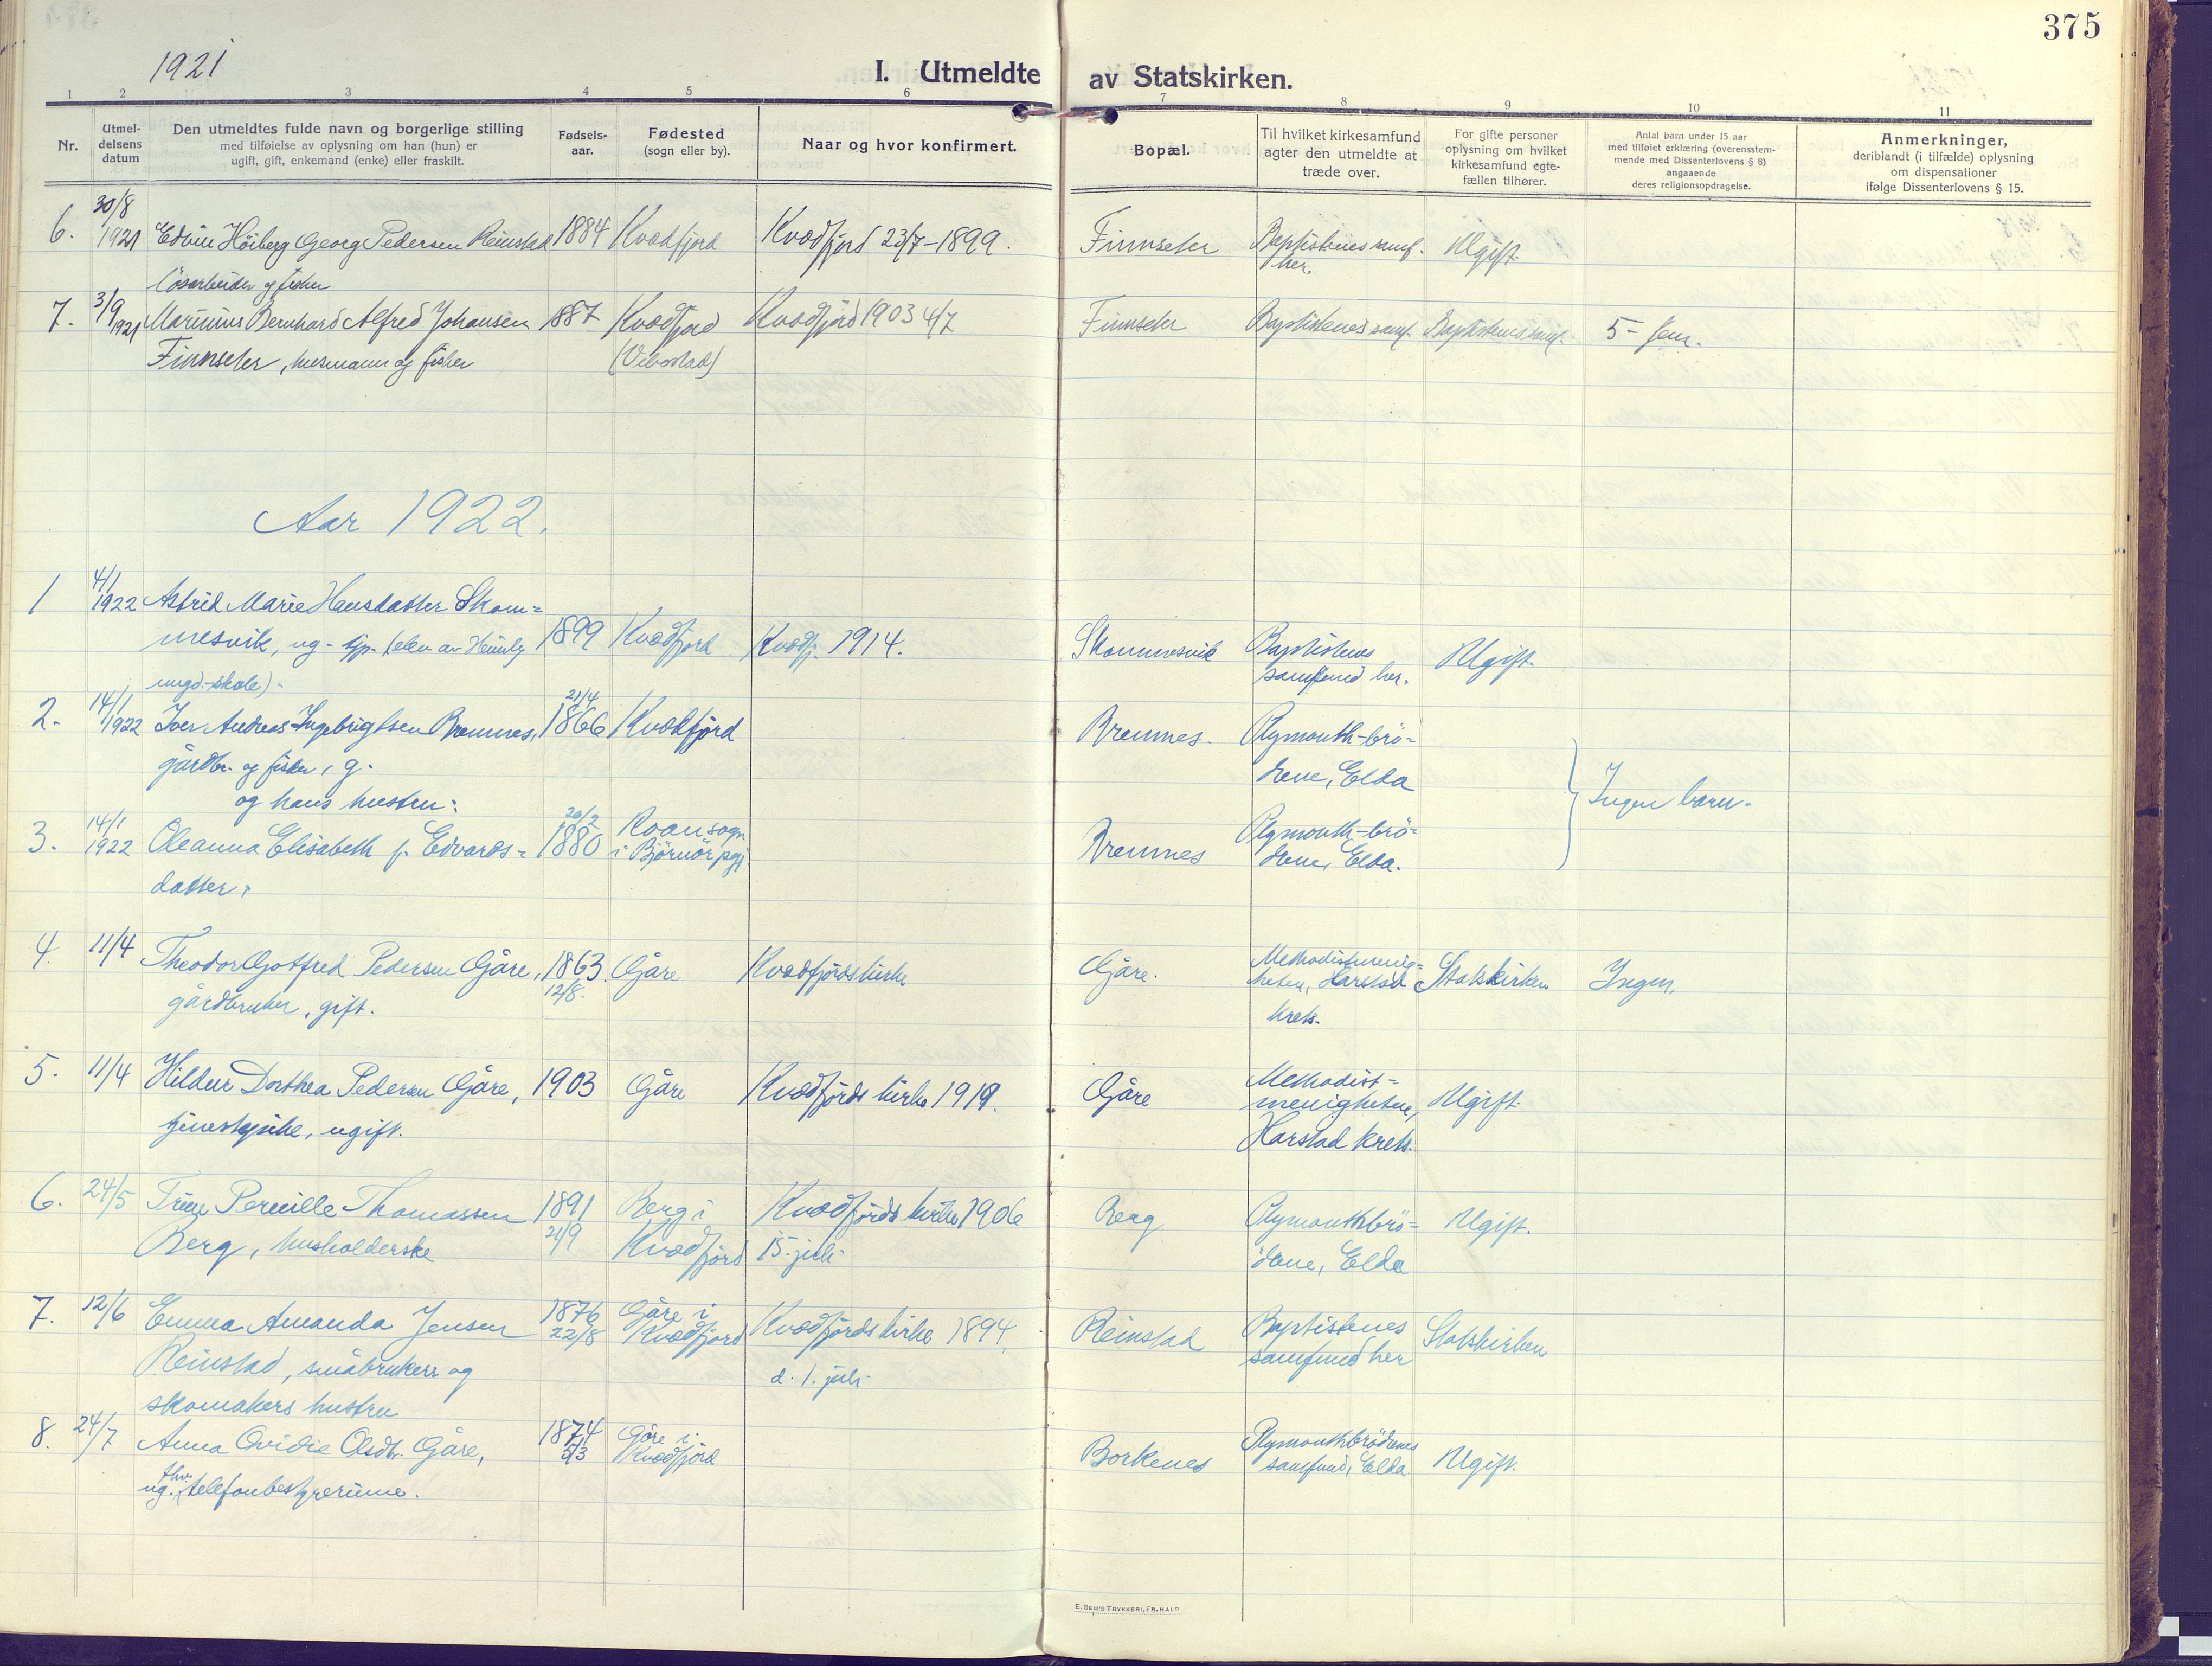 375
1921
I. Utmeldte av Statskirken.
1 2 3 4 5 6 7 8 9 10 11
Nr.
Utmel-
delsens
datum
Den utmeldtes fulde navn og borgerlige stilling
med tilføielse av oplysning om han (hun) er
ugift, gift, enkemand (enke) eller fraskilt.
Fødsels-
aar.
Fødested
(sogn eller by).
Naar og hvor konfirmert.
Bopæl.
Til hvilket kirkesamfund
agter den utmeldte at
træde over.
For gifte personer
oplysning om hvilket
kirkesamfund egte-
fællen tilhører.
Antal barn under 15 aar
med tilføiet erklæring (overensstem-
mende med Dissenterlovens § 8)
angaaende
deres religionsopdragelse.
Anmerkninger,
deriblandt (i tilfælde) oplysning
om dispensationer
ifølge Dissenterlovens § 15.
30/8
6. 1921 Edvin Höiberg Georg Pedersen Reinstad 1884 Kvædfjord Kvædfjord 23/7-1899. Finnseter Baptistenes samf. Ugift.
her.
lösarbeider og fisker
7. 3/9 1921 Marinius Bernhard Alfred Johansen 1887 Kvædfjord Kvædfjord 1903 4/7 Finnseter Baptistenes samf. Baptistenes samf. 5 -
Finnseter, husmann og fisker (Vebostad)
Aar 1922.
4/1
1 1922 Astrid Marie Hansdatter Skom=
mesvik, ug- (elev av Heimly 1899 Kvædfjord Kvædfj. 1914. Skommesvik Baptistenes Ugift.
ungd.-skole). samfund her.
14/1 21/4
2. 1922 Iver Andreas Ingebrigtsen Bremnes, 1866 Kvædfjord Bremnes. Plymouth-brö=
gårdbr. og fisker, g. drene, Elda
og hans hustru: Ingen barn.
14/1 20/2 Roan sogn
3. 1922 Oleanna Elisabeth f. Edvards= 1880 i Björnör pgj Bremnes Plymouth-brö=
datter, drene, Elda.
4. 11/4 Theodor Gotfred Pedersen Gåre, 1863 Gåre Kvædfjords kirke Gåre. Methodistmenig= Statskirken Ingen.
12/8. heten, Harstad
gårdbruker, gift. krets.
5. 11/4 Hildur Dorthea Pedersen Gåre, 1903 Gåre Kvædfjords kirke 1919. Gåre Methodist=
menigheten, Ugift.
tjenestepike, ugift. Harstad krets.
6. 24/5 Trine Pernille Thomassen 1891 Berg i Kvædfjords kirke 1906 Berg Plymouthbrö= Ugift.
Berg, husholderske 21/9 Kvædfjord 15. juli drene, Elda
7. 12/6 Emma Amanda Jensen 1876 Gåre i Kvædfjords kirke 1894, Reinstad Baptistenes Statskirken
22/8 Kvædfjord samfund her
Reinstad, småbrukers og d. 1. juli
skomakers hustru
8. 24/7 Anna Ovidie Olsdtr. Gåre, 1874 Gåre i Borkenes Plymouthbrödrenes Ugift.
5/3 Kvædfjord samfund, Elda.
ug. fhv. telefonbestyrerinne.
E. SEM'S TRYKKERI, FR.HALD